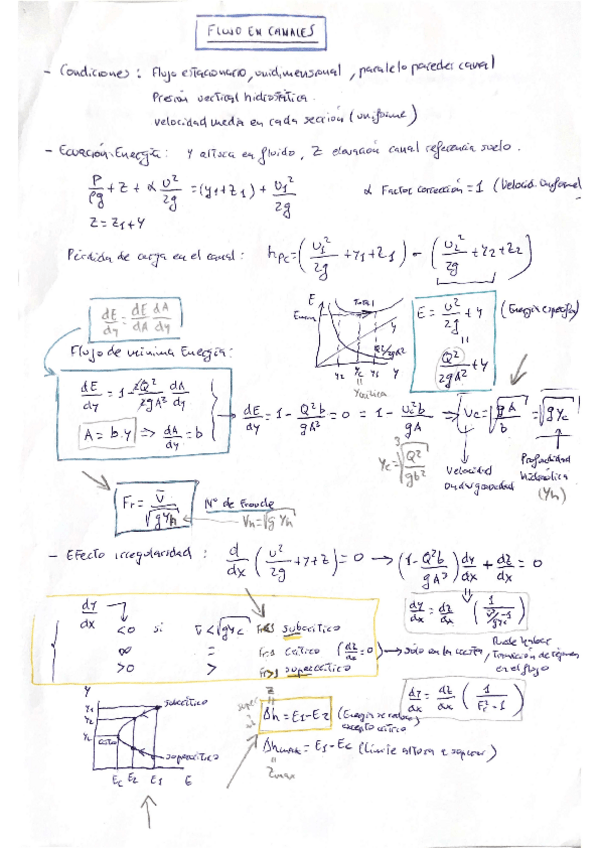 FLUJO EN CANALES
- Condiciones: Flujo estacionario, unidimensional, paralelo paredes canal
Presión vertical hidrostática.
Velocidad media en cada sección (uniforme)
- Ecuación Energía: y altura en fluido, z elevación canal referencia suelo.
P/ρg + z + α v²/2g = (y1+z1) + v1²/2g
α Factor corrección = 1 (Velocid. uniforme)
z = z1 + y
Pérdida de carga en el canal: hpc = (v1²/2g + y1 + z1) - (v2²/2g + y2 + z2)
dE/dy = dE/dA dA/dy
E
Total
y
Q²/2gA²
y2 yc y1 y
E = v²/2g + y (Energía específica)
=
Q²/2gA² + y
Flujo de mínima Energía:
dE/dy = 1 - 2Q²/2gA³ dA/dy
A = b·y => dA/dy = b
→ dE/dy = 1 - Q²b/gA³ = 0 = 1 - vc²b/gA => vc = √(gA/b) = √(g yc)
yc = ³√(Q²/gb²)
Velocidad
Profundidad hidráulica
(yh)
Fr = v/√(g yh) Nº de Froude
vh = √(g yh)
- Efecto irregularidad: d/dx (v²/2g + y + z) = 0 → (1 - Q²b/gA³) dy/dx + dz/dx = 0
dy/dx
<0 si v < √(g yc) Fr<1 subcrítico
∞ = Fr=1 crítico (dz/dx = 0) → solo en la cresta,
>0 > Fr>1 supercrítico
Puede haber
Transición de régimen
en el flujo
dy/dx = dz/dx (1/(Fr² - 1))
y
y1
y2
yc
subcrítico
crítico
supercrítico
Ec E2 E1 E
z
=
Δh = E1 - E2 (Energía se reduce)
excepto crítico
Δhmax = E1 - Ec (límite altura a superar)
=
Zmax